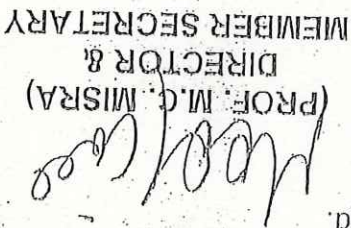 (PROF. M.C. MISRA)
DIRECTOR &
MEMBER SECRETARY